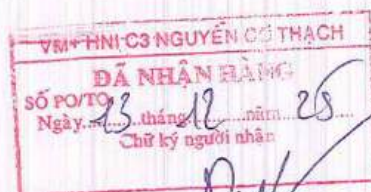 VM+ HNI C3 NGUYỄN CƠ THẠCH
ĐÃ NHẬN HÀNG
SỐ PO/TO
Ngày 13 tháng 12 năm 25
Chữ ký người nhận